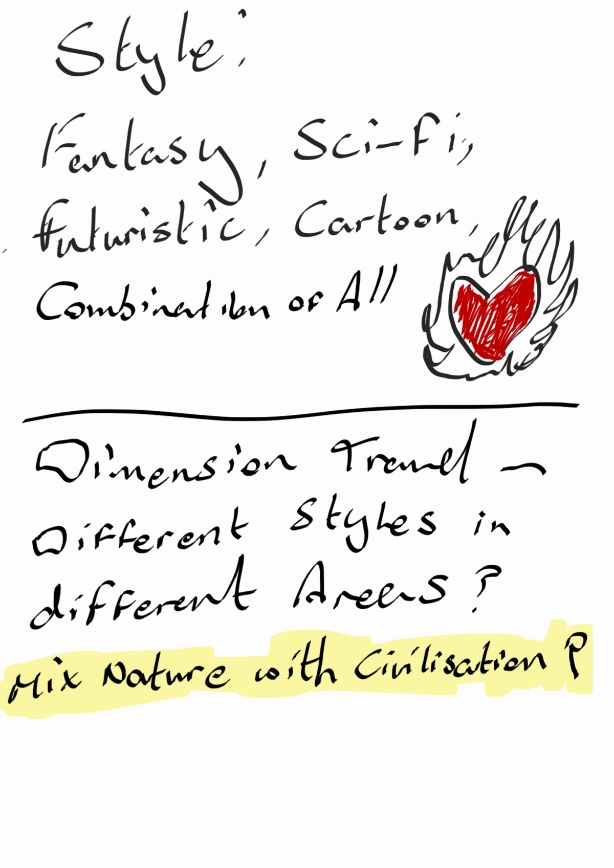 Style:
Fantasy, Sci-Fi,
Futuristic, Cartoon,
Combination of All
Dimension Travel -
Different Styles in
different Areas?
Mix Nature with Civilisation?